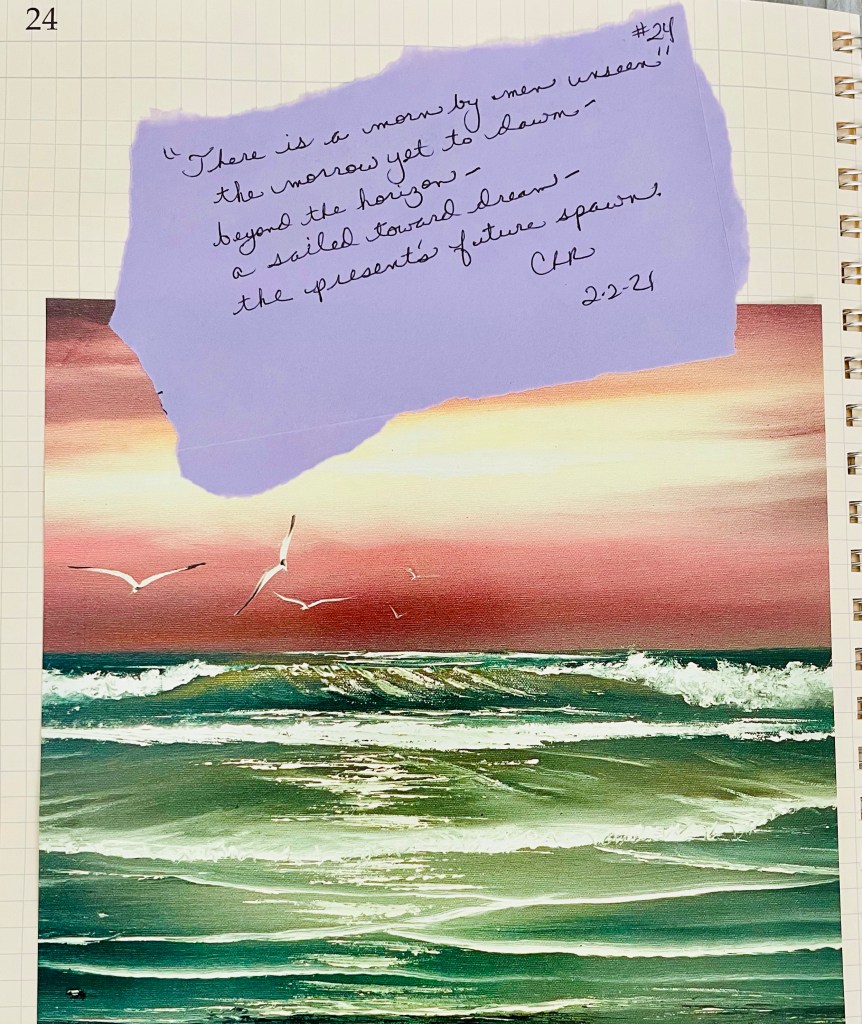 24
#24
"There is a morn by men unseen"
the morrow yet to dawn-
beyond the horizon-
a sailed toward dream-
the present's future spawn.
CLR
2-2-21